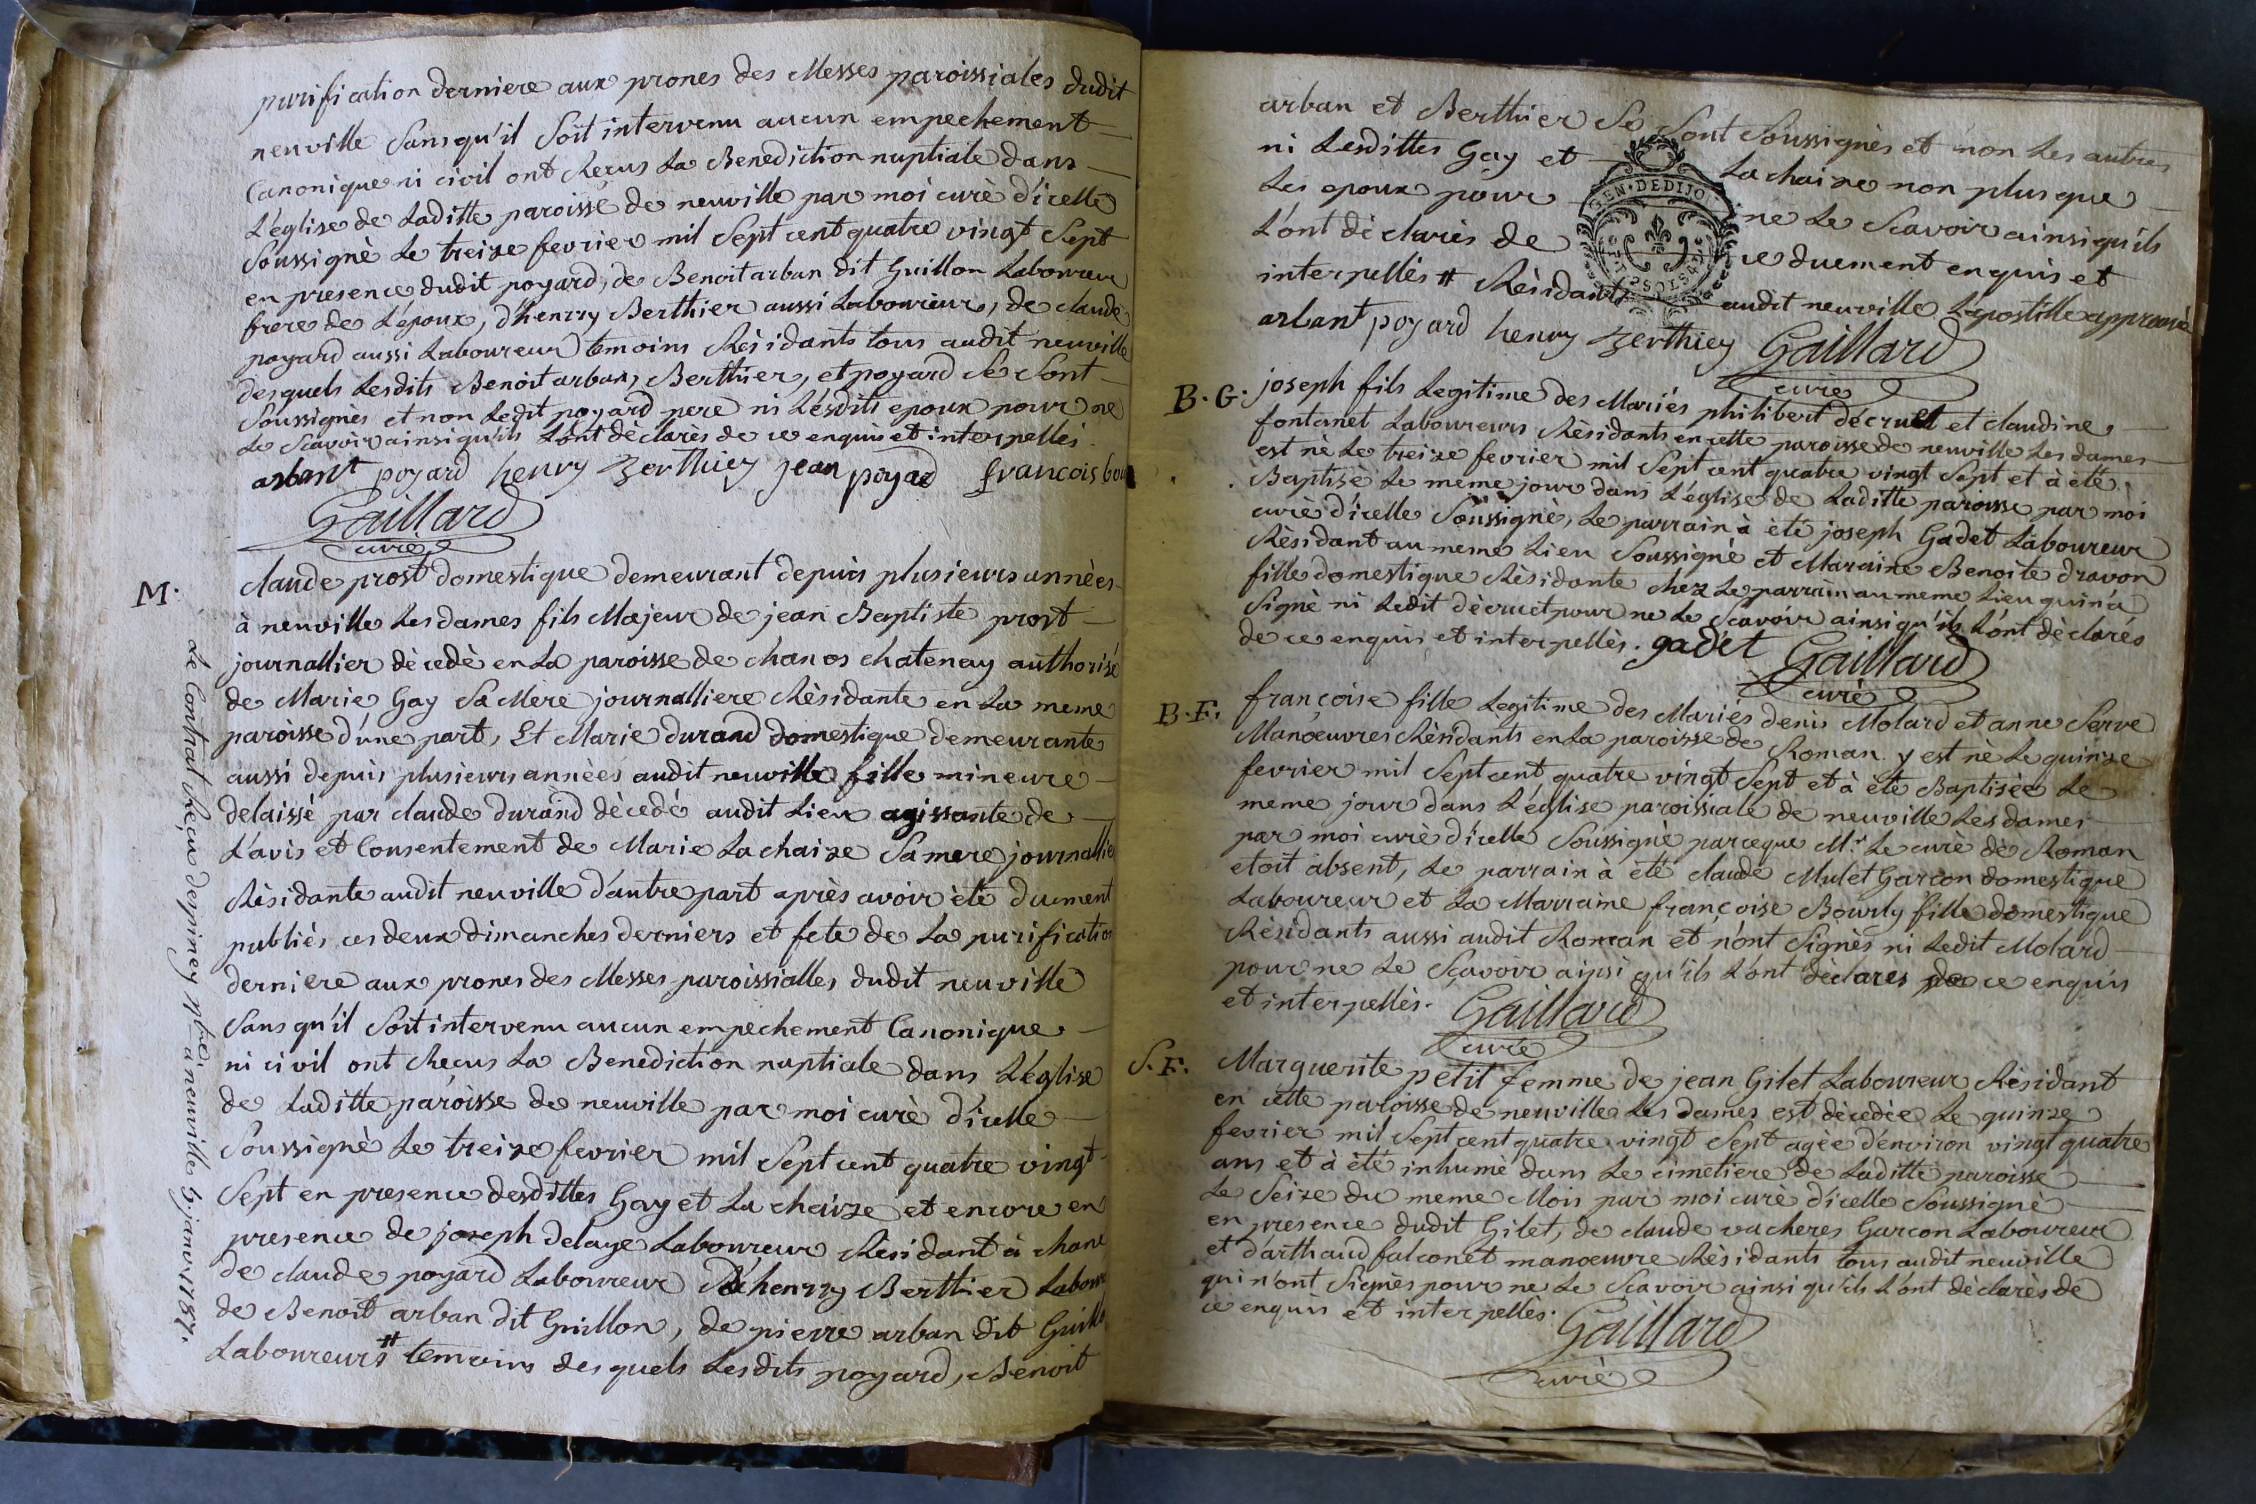 purification derniere aux prones des Messes paroissiales dudit
neuville Sans qu'il Soit intervenu aucun empechement
Canonique ni civil ont Recus La Benediction nuptiale dans
L'église de Laditte paroisse de neuville par moi curè d'icelle
Soussignè Le treize fevrier mil Sept cent quatre vingt Sept
en presence dudit poyard, de Benoit arban dit Guillon Laboureur
frere de L'époux, d'henrry Berthier aussi Laboureur, de claude
poyard aussi Laboureur temoins Rèsidants tous audit neuville
desquels Lesdits Benoit arban, Berthier, et poyard Se Sont
Soussignès et non Ledit poyard pere ni Lésdits epoux pour ne
Le Scavoir ainsi qu'ils L'ont dèclarès de ce enquis et interpellès.
arbant poyard henry berthiey jean poyard francois
Gaillard
curé
M.
claude prost domestique demeurant depuis plusieurs annèes
à neuville Les dames fils Majeur de jean Baptiste prost
journallier dècedè en La paroisse de chanos chatenay authorisé
de Marie Gay Sa Mere journalliere Rèsidante en La meme
paroisse d'une part, Et Marie durand domestique demeurante
aussi depuis plusieurs annèes audit neuville fille mineure
delaissé par claude durand dècedé audit Lieu agissante de
L'avis et Consentement de Marie La chaize Sa mere journallie
Rèsidante audit neuville d'autre part après avoir été duement
publiès ces deux dimanches derniers et fete de La purification
derniere aux prones des Messes paroissialles dudit neuville
Sans qu'il Soit intervenu aucun empechement Canonique
ni civil ont Reçus La Benediction nuptiale dans L'église
de Laditte paroisse de neuville par moi curè d'icelle
Soussignè Le treize fevrier mil Sept cent quatre vingt
Sept en presence desdittes Gay et La chaize et encore en
presence de joseph delaye Laboureur Rèsidant à chane
de claude poyard Laboureur d'henrry Berthier Labour
de Benoit arban dit Guillon, de pierre arban dit Guillo
Laboureurs # temoins desquels Lesdits poyard, Benoit
Le Contrat Reçu despiney à neuville janv. 1787.
arban et Berthier Se Sont Soussignès et non Les autres
ni Lesdittes Gay et La chaize non plus que
Les epoux pour ne Le Scavoir ainsi qu'ils
L'ont dèclarès de ce duement enquis et
interpellès # Rèsidants audit neuville L'apostille approuvé
GEN · DEDIJO
arbant poyard henry berthiey Gaillard
curè
B. G.
joseph fils Legitime des Mariés philibert décruet et claudine
fontanet Laboureurs Rèsidants en cette paroisse de neuville Les dames
est nè Le treize fevrier mil Sept cent quatre vingt Sept et à été
Baptisè Le meme jour dans L'église de Laditte paroisse par moi
curè d'icelle Soussignè, Le parrain à été joseph Gadet Laboureur
Rèsidant au meme Lieu Soussigné et Maraine Benoite dravon
fille domestique Rèsidante chez Le parrain au meme Lieu qui n'a
Signè ni Ledit dècruet pour ne Le Scavoir ainsi qu'ils L'ont dèclarés
de ce enquis et interpellès. gadet Gaillard
curè
B. F.
françoise fille Legitime des Mariés denis Molard et anne Serve
Manœuvres Rèsidants en La paroisse de Roman y est nè Le quinze
fevrier mil Sept cent quatre vingt Sept et à été Baptisèe Le
meme jour dans L'église paroissiale de neuville Les dames
par moi curè d'icelle Soussignè parceque Mr. Le curè de Roman
etoit absent, Le parrain à été claude Mulet Garcon domestique
Laboureur et La Marraine françoise Bourly fille domestique
Rèsidants aussi audit Roman et n'ont Signès ni Ledit Molard
pour ne Le Sçavoir ainsi qu'ils L'ont dèclarés de ce enquis
et interpellès. Gaillard
curé
S. F.
Marguerite petit femme de jean Gilet Laboureur Rèsidant
en cette paroisse de neuville Les dames est dècedèe Le quinze
fevrier mil Sept cent quatre vingt Sept agèe d'environ vingt quatre
ans et à été inhumè dans Le cimetiere de Laditte paroisse
Le Seize du meme Mois par moi curè d'icelle Soussignè
en presence dudit Gilet, de claude vacheres Garcon Laboureur
et d'arthaud falconet manœuvre Rèsidants tous audit neuville
qui n'ont Signès pour ne Le Scavoir ainsi qu'ils L'ont dèclarès de
ce enquis et interpellès. Gaillard
curè